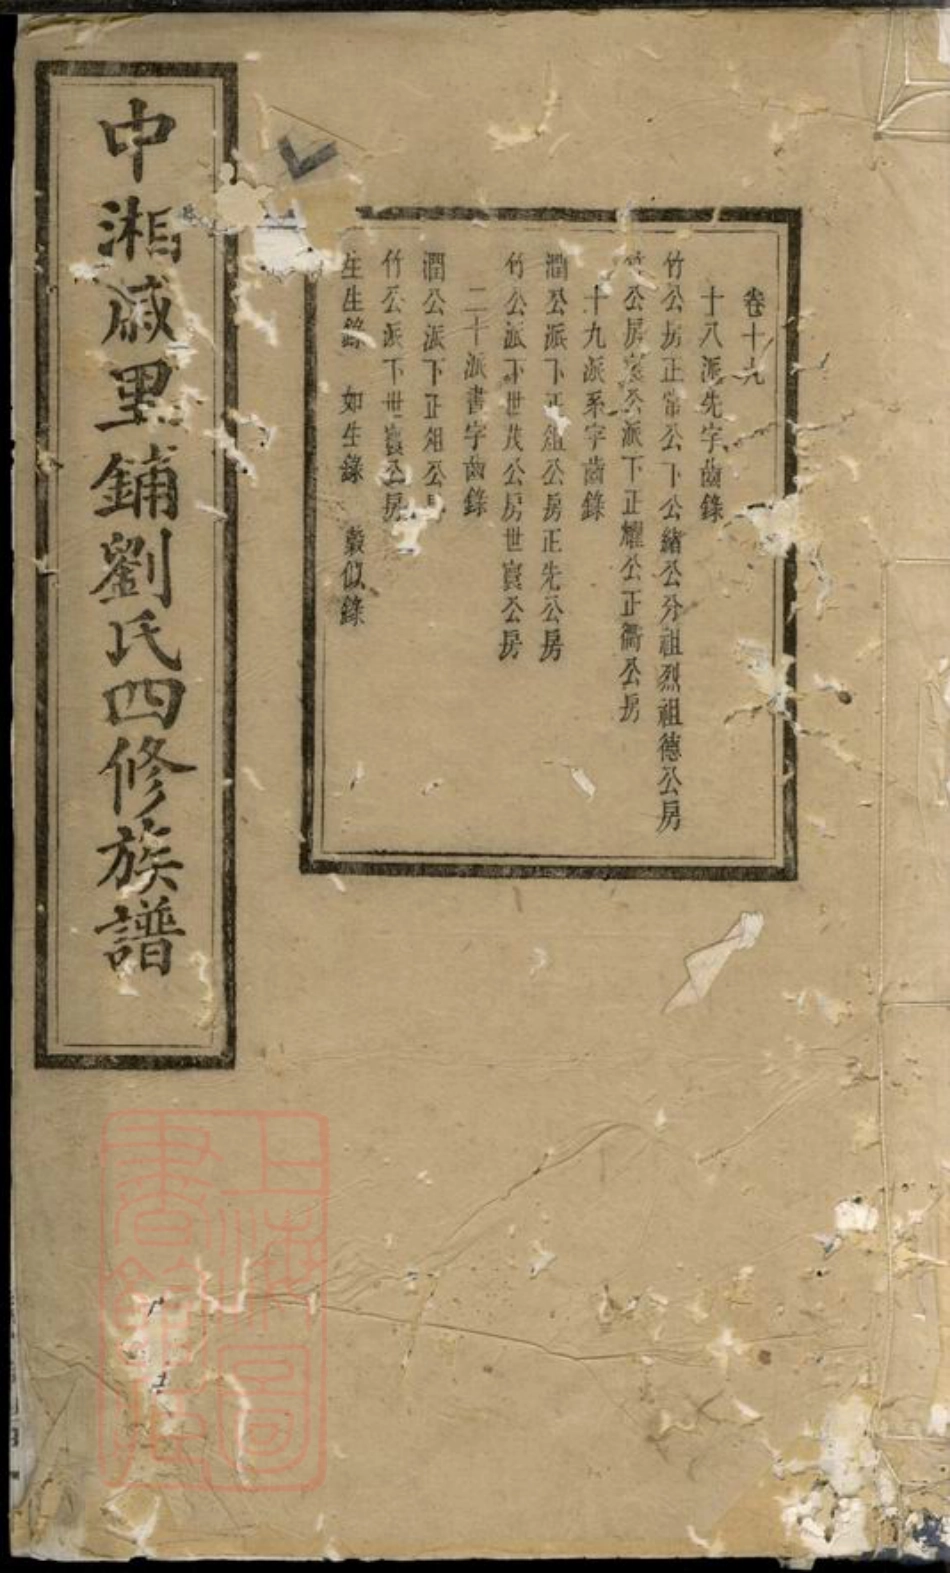 中湘戚里鋪劉氏四修族譜
卷十九
十八派先字齒錄
竹公房正常公下公緒公分祖烈祖德公房
竹公房寰公派下正耀公正衢公房
十九派系字齒錄
潤公派下正俎公房正先公房
竹公派下世茂公房世寰公房
二十派書字齒錄
潤公派下正俎公房
竹公派下世寰公房
生生錄 如生錄 穀似錄
上海圖
書館藏